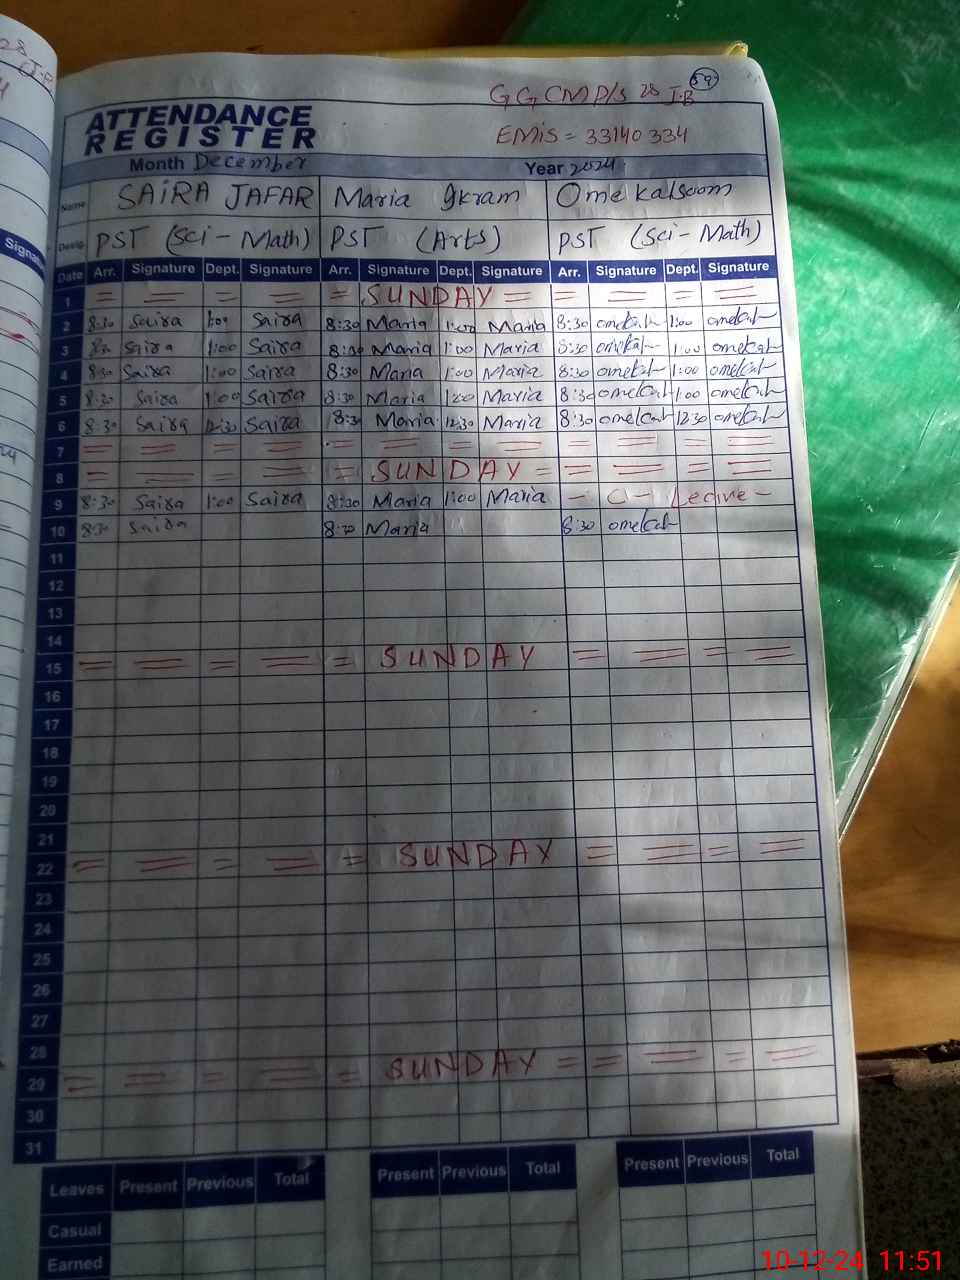 59
GGCMP/S 28 J.B
ATTENDANCE
REGISTER
EMIS = 33140334
Month December Year 2024
Name SAIRA JAFAR Maria Ikram Omekalsoom
Desig. PST (Sci - Math) PST (Arts) PST (Sci - Math)
Date Arr. Signature Dept. Signature Arr. Signature Dept. Signature Arr. Signature Dept. Signature
1 = = = = = SUNDAY = = = = =
2 8:30 Saira 1:00 Saira 8:30 Maria 1:00 Maria 8:30 omekal 1:00 omekal
3 8:30 Saira 1:00 Saira 8:30 Maria 1:00 Maria 8:30 omekal 1:00 omekal
4 8:30 Saira 1:00 Saira 8:30 Maria 1:00 Maria 8:30 omekal 1:00 omekal
5 8:30 Saira 1:00 Saira 8:30 Maria 1:00 Maria 8:30 omekal 1:00 omekal
6 8:30 Saira 12:30 Saira 8:30 Maria 12:30 Maria 8:30 omekal 12:30 omekal
7 = = = = = = = = = = =
8 = = = = = SUNDAY = = = = =
9 8:30 Saira 1:00 Saira 8:30 Maria 1:00 Maria - C - Leave -
10 8:30 Saira 8:30 Maria 8:30 omekal
11
12
13
14
15 = = = = = SUNDAY = = = =
16
17
18
19
20
21
22 = = = = = SUNDAY = = = =
23
24
25
26
27
28
29 = = = = = SUNDAY = = = = =
30
31
Leaves Present Previous Total Present Previous Total Present Previous Total
Casual
Earned
10-12-24 11:51